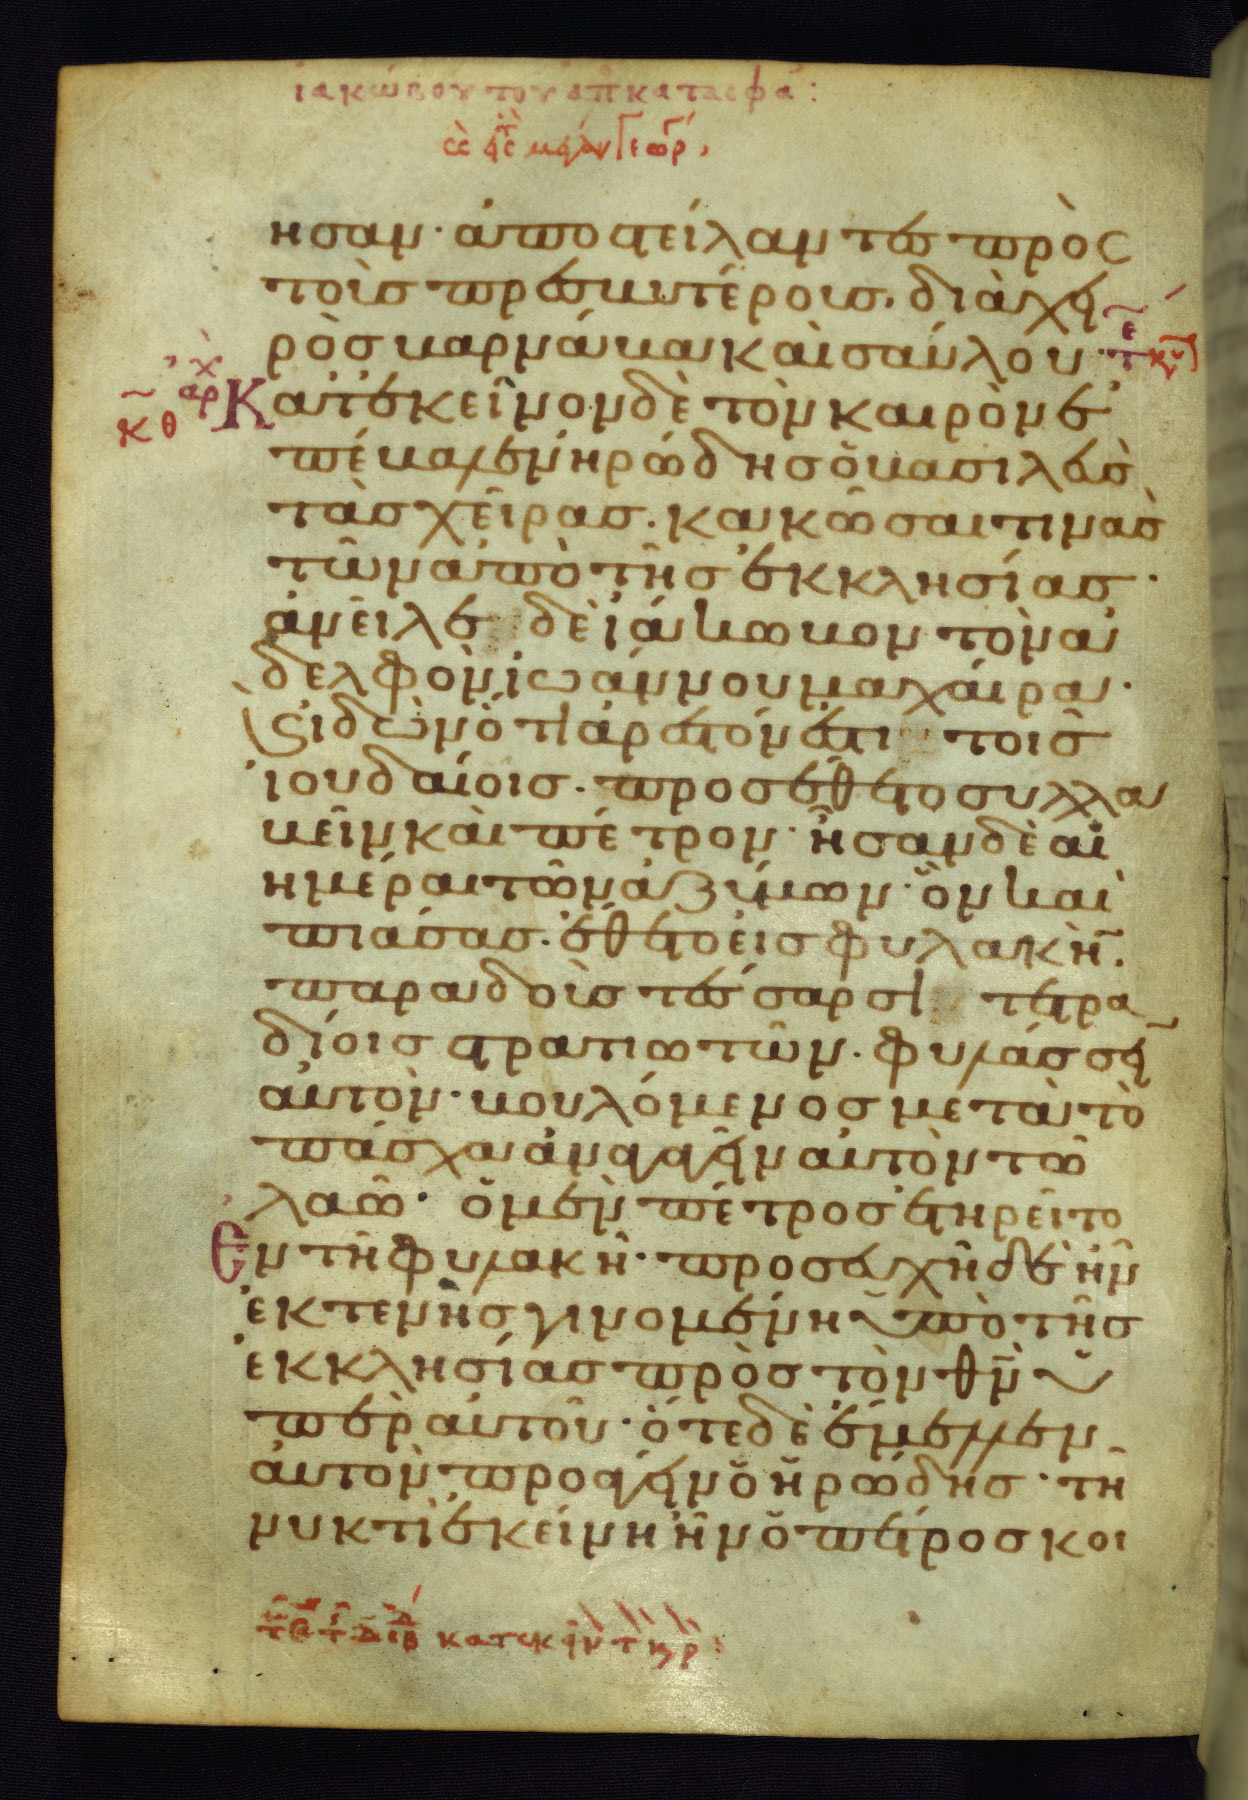 ἰακώβου τοῦ ἀπ
ησαν· ἀποστείλαντες πρὸς
τοὺς πρεσβυτέρους. διὰ χει
ρὸς βαρνάβα καὶ σαύλου·
Κατ' ἐκεῖνον δὲ τὸν καιρὸν ἐ
πέβαλεν ἡρώδης ὁ βασιλεὺς
τὰς χεῖρας. κακῶσαι τινὰς
τῶν ἀπὸ τῆς ἐκκλησίας·
ἀνεῖλε δὲ ἰάκωβον τὸν ἀ
δελφὸν ἰωάννου μαχαίρα·
ἰδὼν ὅτι ἀρεστόν ἐστι τοῖς
ἰουδαίοις. προσέθετο συλλα
βεῖν καὶ πέτρον· ἦσαν δὲ αἱ
ἡμέραι τῶν ἀζύμων· ὃν καὶ
πιάσας. ἔθετο εἰς φυλακὴν.
παραδοὺς τέσσαρσι τετρα
δίοις στρατιωτῶν. φυλάσσειν
αὐτὸν· βουλόμενος μετὰ τὸ
πάσχα ἀναγαγεῖν αὐτὸν τῶ
λαῶ· ὁ μὲν πέτρος ἐτηρεῖτο
Ἐν τῆ φυλακῆ· προσευχὴ δὲ ἦν
ἐκτενὴς γινομένη ὑπὸ τῆς
ἐκκλησίας πρὸς τὸν θν ὑ
πὲρ αὐτοῦ· ὅτε δὲ ἔμελλεν
αὐτὸν προάγειν ὁ ἡρώδης· τῆ
νυκτὶ ἐκείνη ἦν ὁ πέτρος κοι